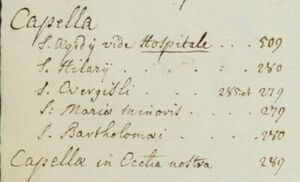 Capella
S. Ægidÿ vide Hospitale . . . 509
S. Hilarÿ . . . . 280
S. Evergisli . . 285 et 279
S: Mariæ minoris . . 279
S. Bartholomæi . . 280
Capella in Ecclia nostra 289